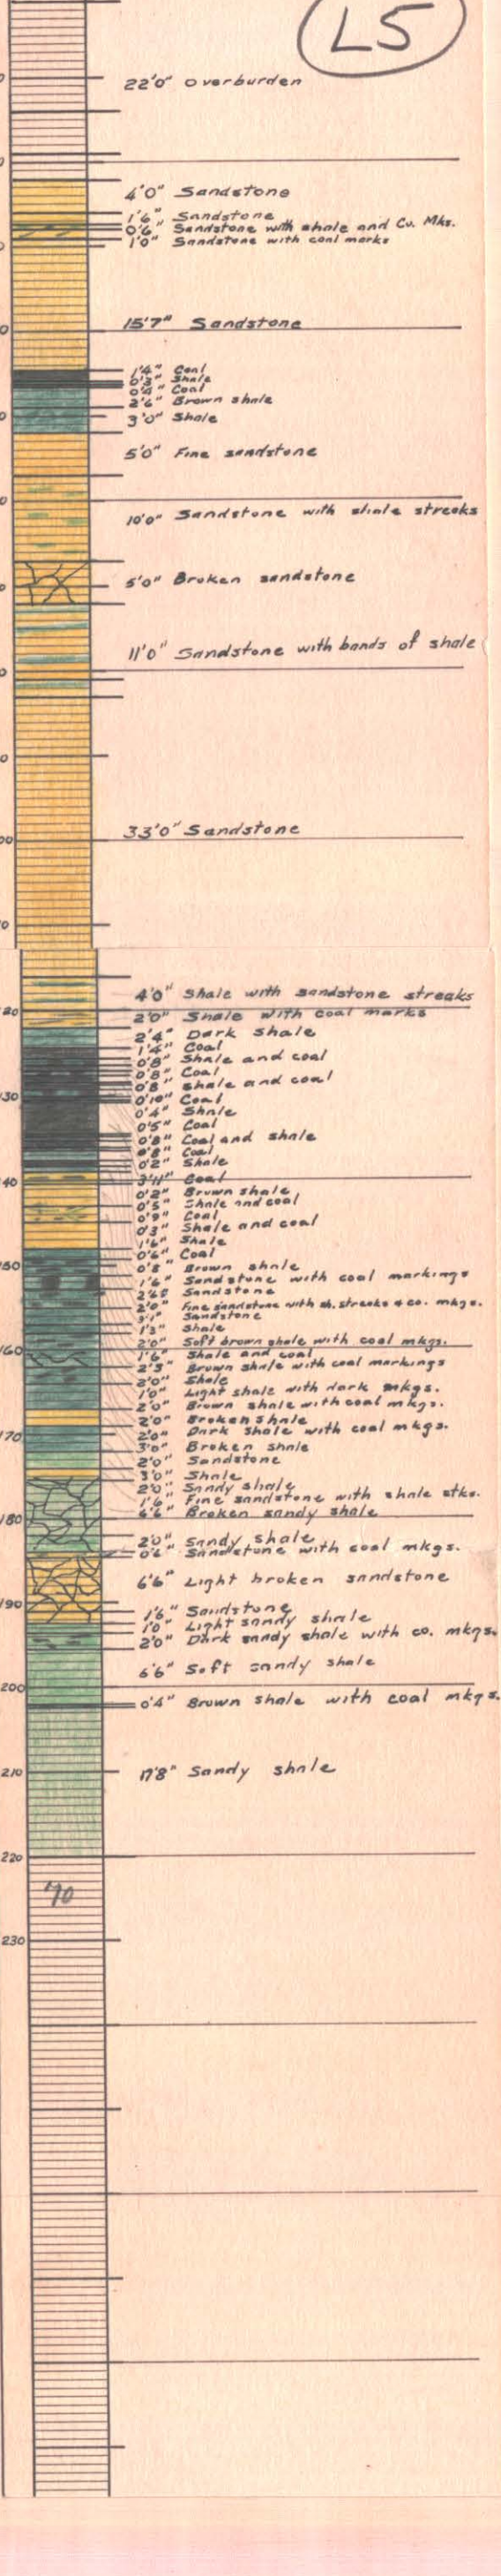 L5
22'0" Overburden
4'0" Sandstone
1'6" Sandstone
0'6" Sandstone with shale and Co. Mks.
1'0" Sandstone with coal marks
15'7" Sandstone
1'4" Coal
0'3" Shale
0'4" Coal
2'6" Brown shale
3'0" Shale
5'0" Fine sandstone
10'0" Sandstone with shale streaks
5'0" Broken sandstone
11'0" Sandstone with bands of shale
33'0" Sandstone
4'0" Shale with sandstone streaks
2'0" Shale with coal marks
2'4" Dark shale
1'4" Coal
0'8" Shale and coal
0'8" Coal
0'8" Shale and coal
0'10" Coal
0'4" Shale
0'5" Coal
0'8" Coal and shale
0'8" Coal
0'2" Shale
3'11" Coal
0'2" Brown shale
0'5" Shale and coal
0'9" Coal
0'3" Shale and coal
1'6" Shale
0'6" Coal
0'8" Brown shale
1'6" Sandstone with coal markings
Sandstone
2'0" Fine sandstone with sh. streaks & co. mkgs.
Sandstone
1'3" Shale
2'0" Soft brown shale with coal mkgs.
1'6" Shale and coal
2'3" Brown shale with coal markings
3'0" Shale
1'0" Light shale with dark mkgs.
2'0" Brown shale with coal mkgs.
2'0" Broken shale
2'0" Dark shale with coal mkgs.
3'0" Broken shale
2'0" Sandstone
3'0" Shale
2'0" Sandy shale
1'6" Fine sandstone with shale stks.
6'6" Broken sandy shale
2'0" Sandy shale
0'6" Sandstone with coal mkgs.
6'6" Light broken sandstone
1'6" Sandstone
1'0" Light sandy shale
2'0" Dark sandy shale with co. mkgs.
6'6" Soft sandy shale
200
0'4" Brown shale with coal mkgs.
210
17'8" Sandy shale
220
70
230